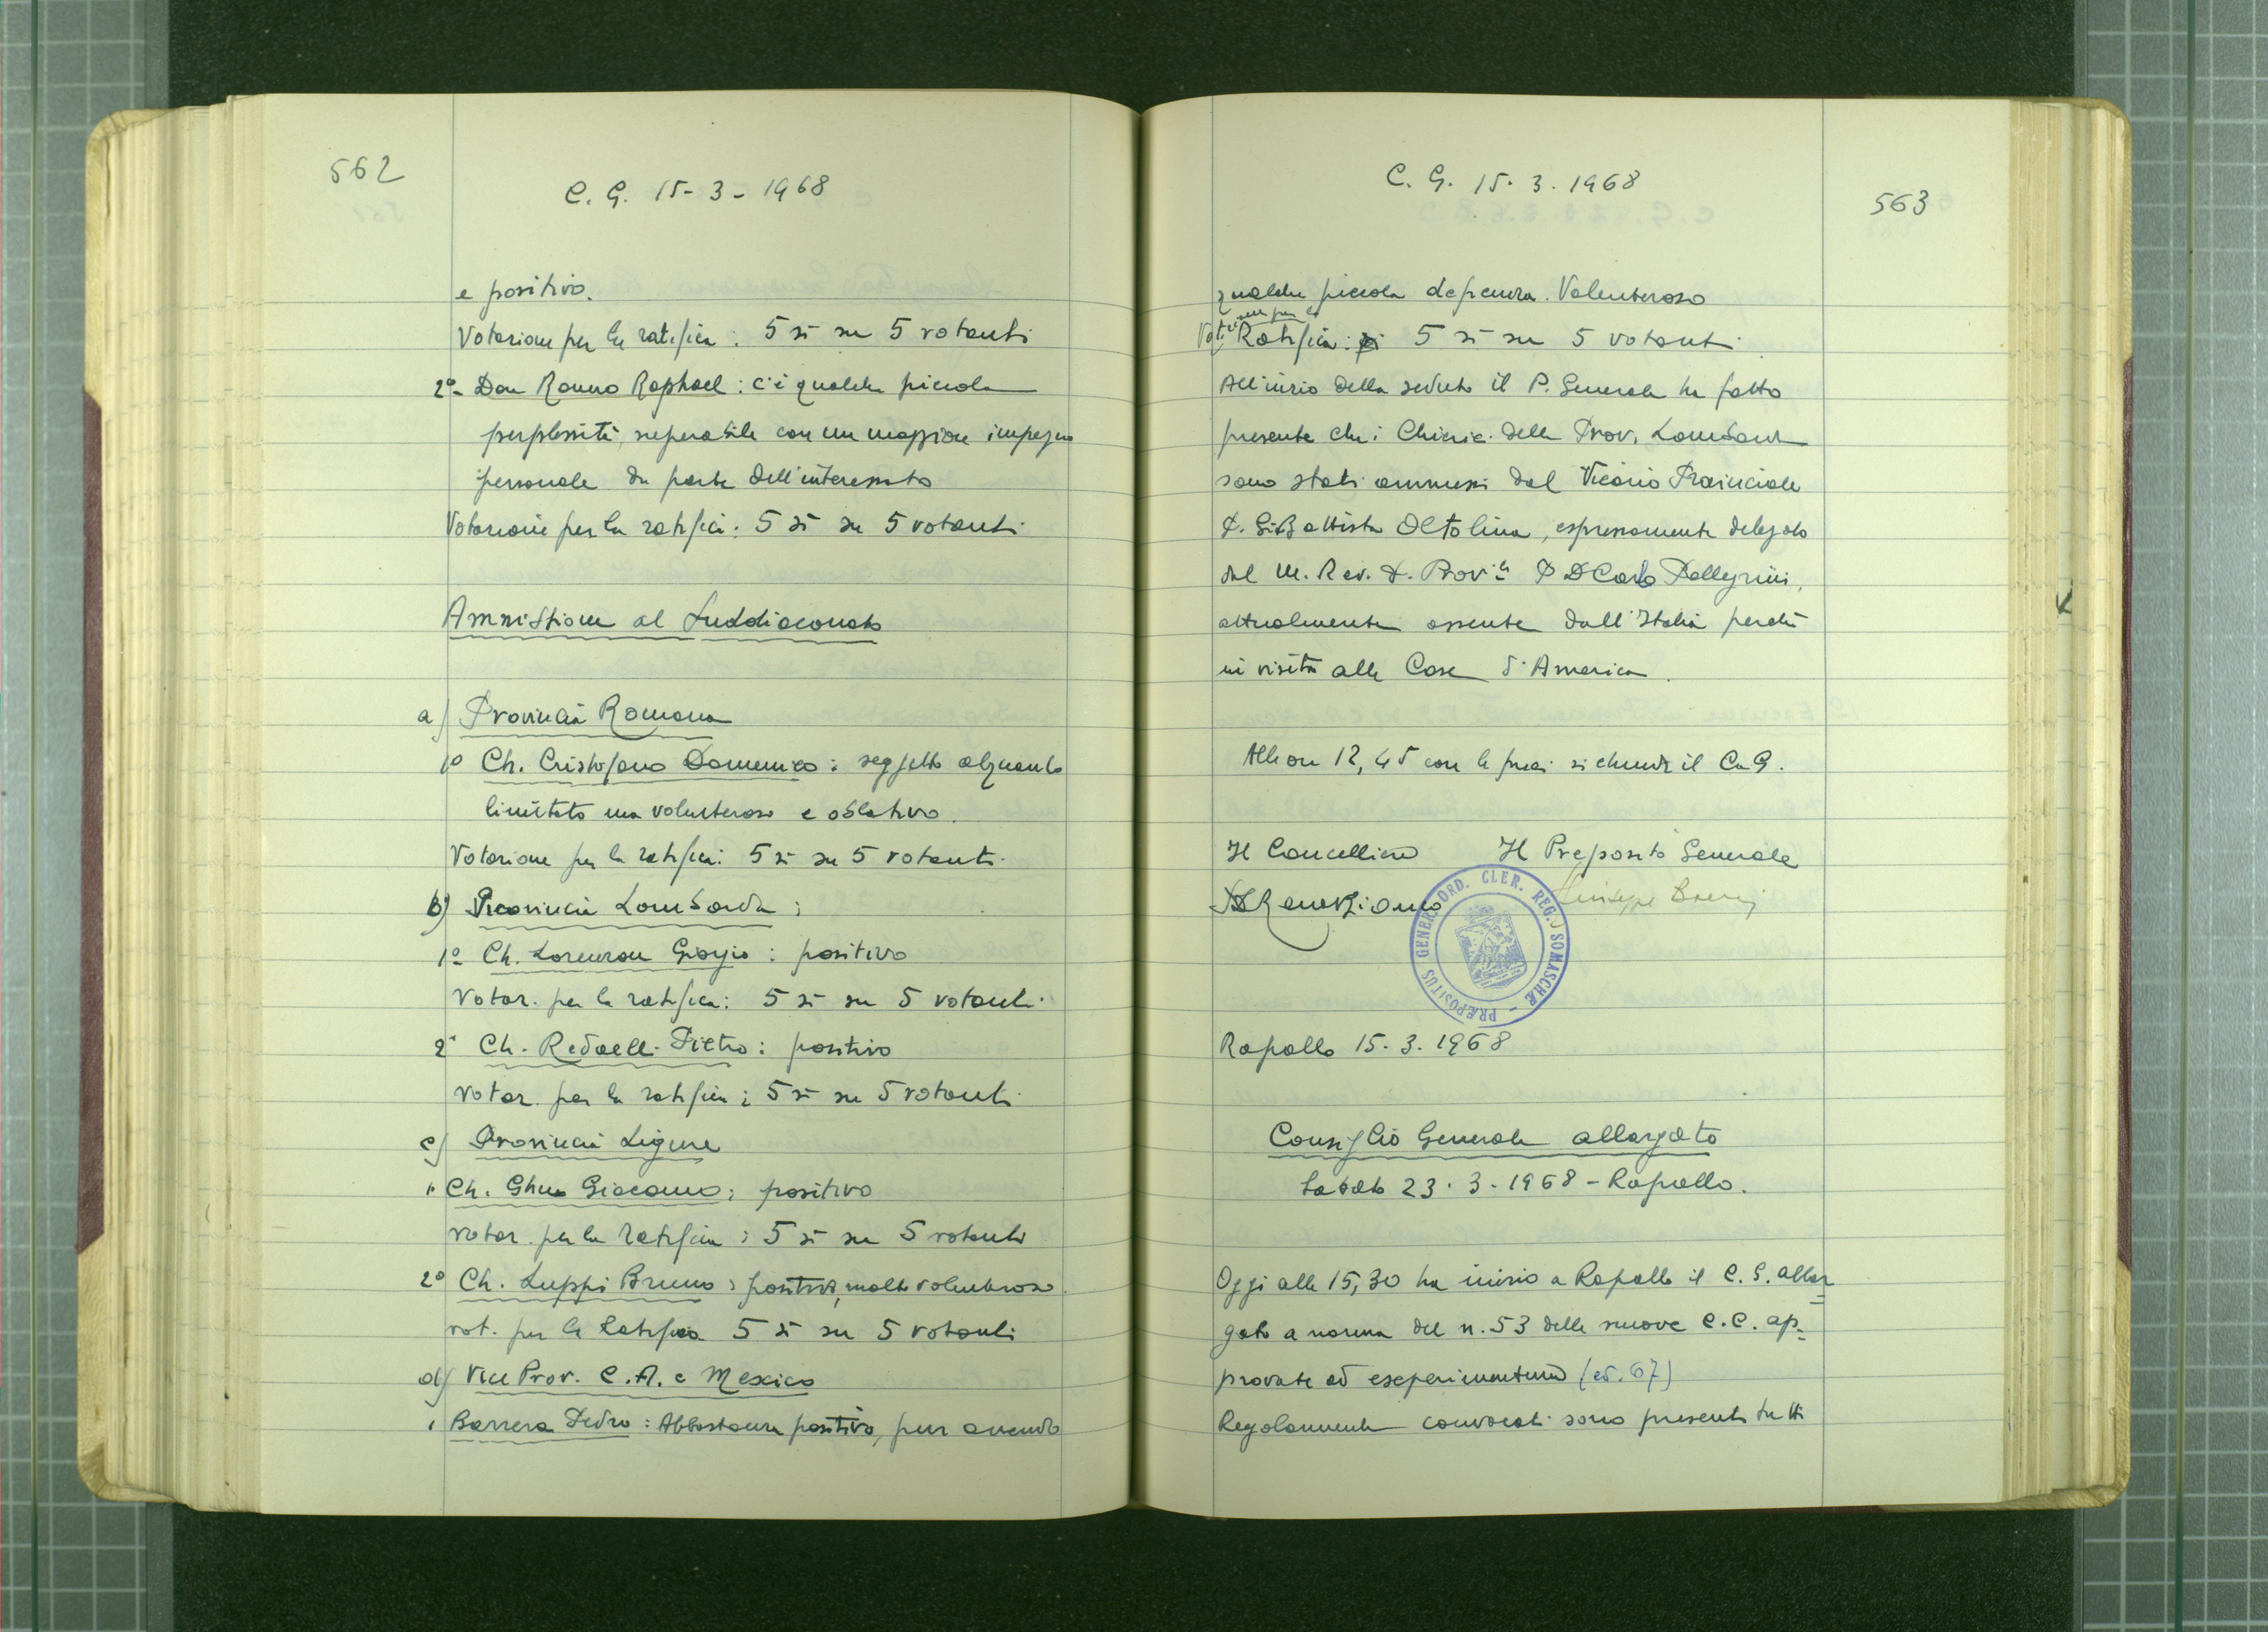 562
C. G. 15-3-1968
e positivo.
Votazione per la ratifica: 5 sì su 5 votanti
2º- Don Ronno Raphael: c'è qualche piccola
perplessità, superabile con un maggiore impegno
personale da parte dell'interessato
Votazione per la ratifica: 5 sì su 5 votanti
Ammissione al Suddiaconato
a) Provincia Romana
1º Ch. Cristofano Domenico: soggetto alquanto
limitato ma volenteroso e oblativo.
Votazione per la ratifica: 5 sì su 5 votanti.
b) Provincia Lombarda:
1º Ch. Lorenzon Giorgio: positivo
Votaz. per la ratifica: 5 sì su 5 votanti.
2º Ch. Redaelli Pietro: positivo
votaz. per la ratifica: 5 sì su 5 votanti
c) Provincia Ligure
1º Ch. Ghu Giacomo: positivo
votaz. per la ratifica: 5 sì su 5 votanti
2º Ch. Luppi Bruno: positivo, molto volenteroso.
vot. per la ratifica 5 sì su 5 votanti
d) Vice Prov. C.A. e Mexico
1 Barrera Pedro: Abbastanza positivo, pur avendo
C. G. 15.3.1968
563
qualche piccola deficienza. Volenteroso
Votazione per la Ratifica: 5 sì su 5 votanti.
All'inizio della seduta il P. Generale ha fatto
presente che i Chierici della Prov. Lombarda
sono stati ammessi dal Vicario Provinciale
P. G. Battista Oltolina, espressamente delegato
dal M. Rev. P. Prov.le P. D Carlo Pellegrini,
attualmente assente dall'Italia perché
in visita alle Case d'America.
Alle ore 12,45 con le preci si chiude il C.G.
Il Cancelliere Il Preposito Generale
Giuseppe
PRÆPOSITUS GENER. ORD. CLER. REG. SOMASCHÆ
Rapallo 15.3.1968
Consiglio Generale allargato
Sabato 23.3.1968 - Rapallo.
Oggi alle 15,30 ha inizio a Rapallo il C.G. allar=
gato a norma del n. 53 delle nuove C.C. ap=
provate ad experimentum (ed. 67)
Regolarmente convocati sono presenti tutti